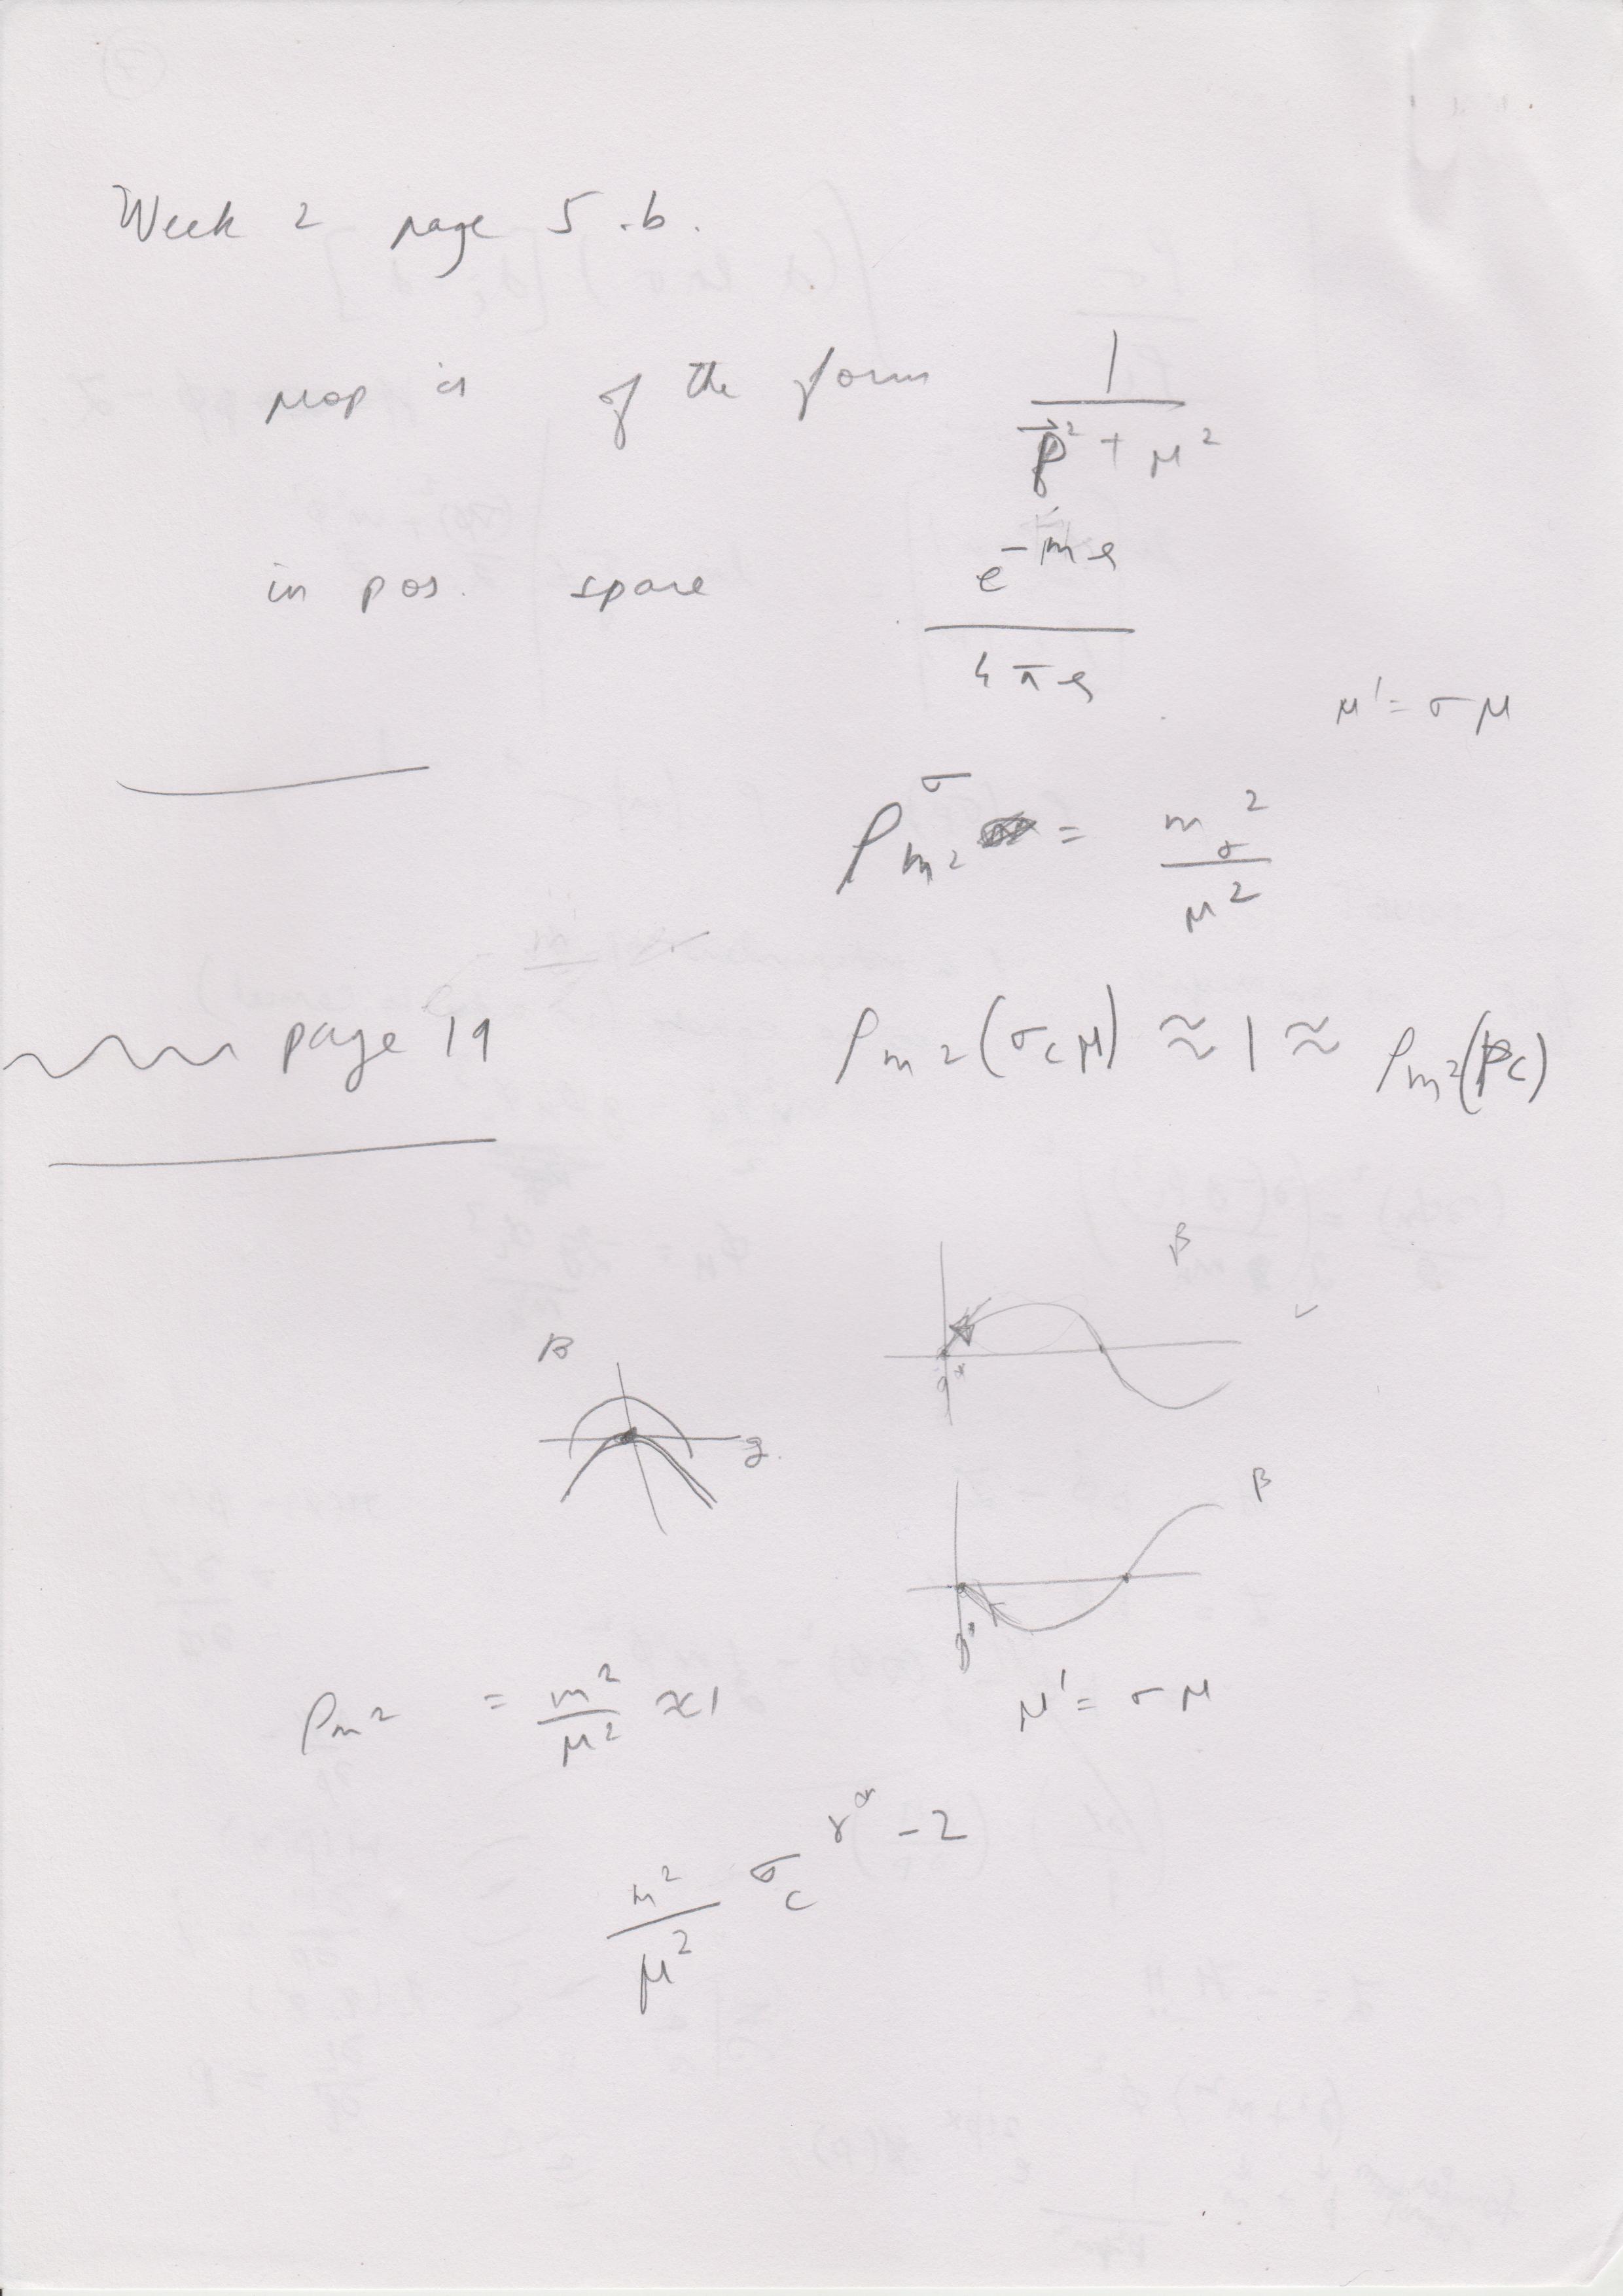 Week 2 page 5.b.
prop is of the form 1 / (p⃗² + μ²)
in pos. space e^{-mr} / 4πr
μ' = σμ
ρ_{m²}^σ = m_σ² / μ²
page 19 ρ_{m²}(σ_c μ) ≈ 1 ≈ ρ_{m²}(p_c)
β
β
g*
g
β
g*
ρ_{m²} = m²/μ² ≈ 1 μ' = σμ
m²/μ² σ_c^{γ* - 2}